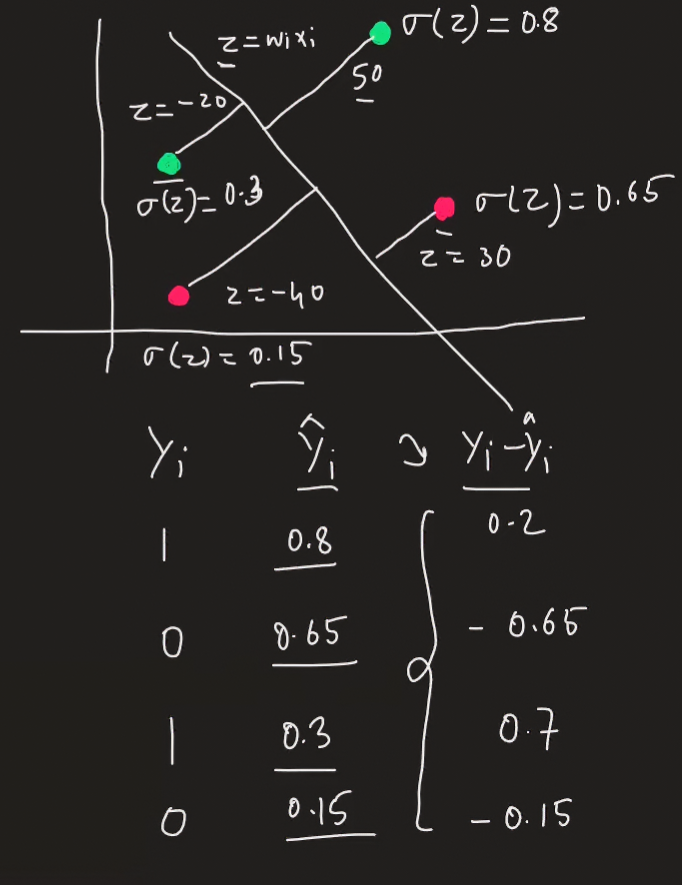 z = wixi
σ(z) = 0.8
50
z = -20
σ(z) = 0.3
σ(z) = 0.65
z = 30
z = -40
σ(z) = 0.15
yi ŷi yi - ŷi
1 0.8 0.2
0 0.65 - 0.65
1 0.3 0.7
0 0.15 - 0.15